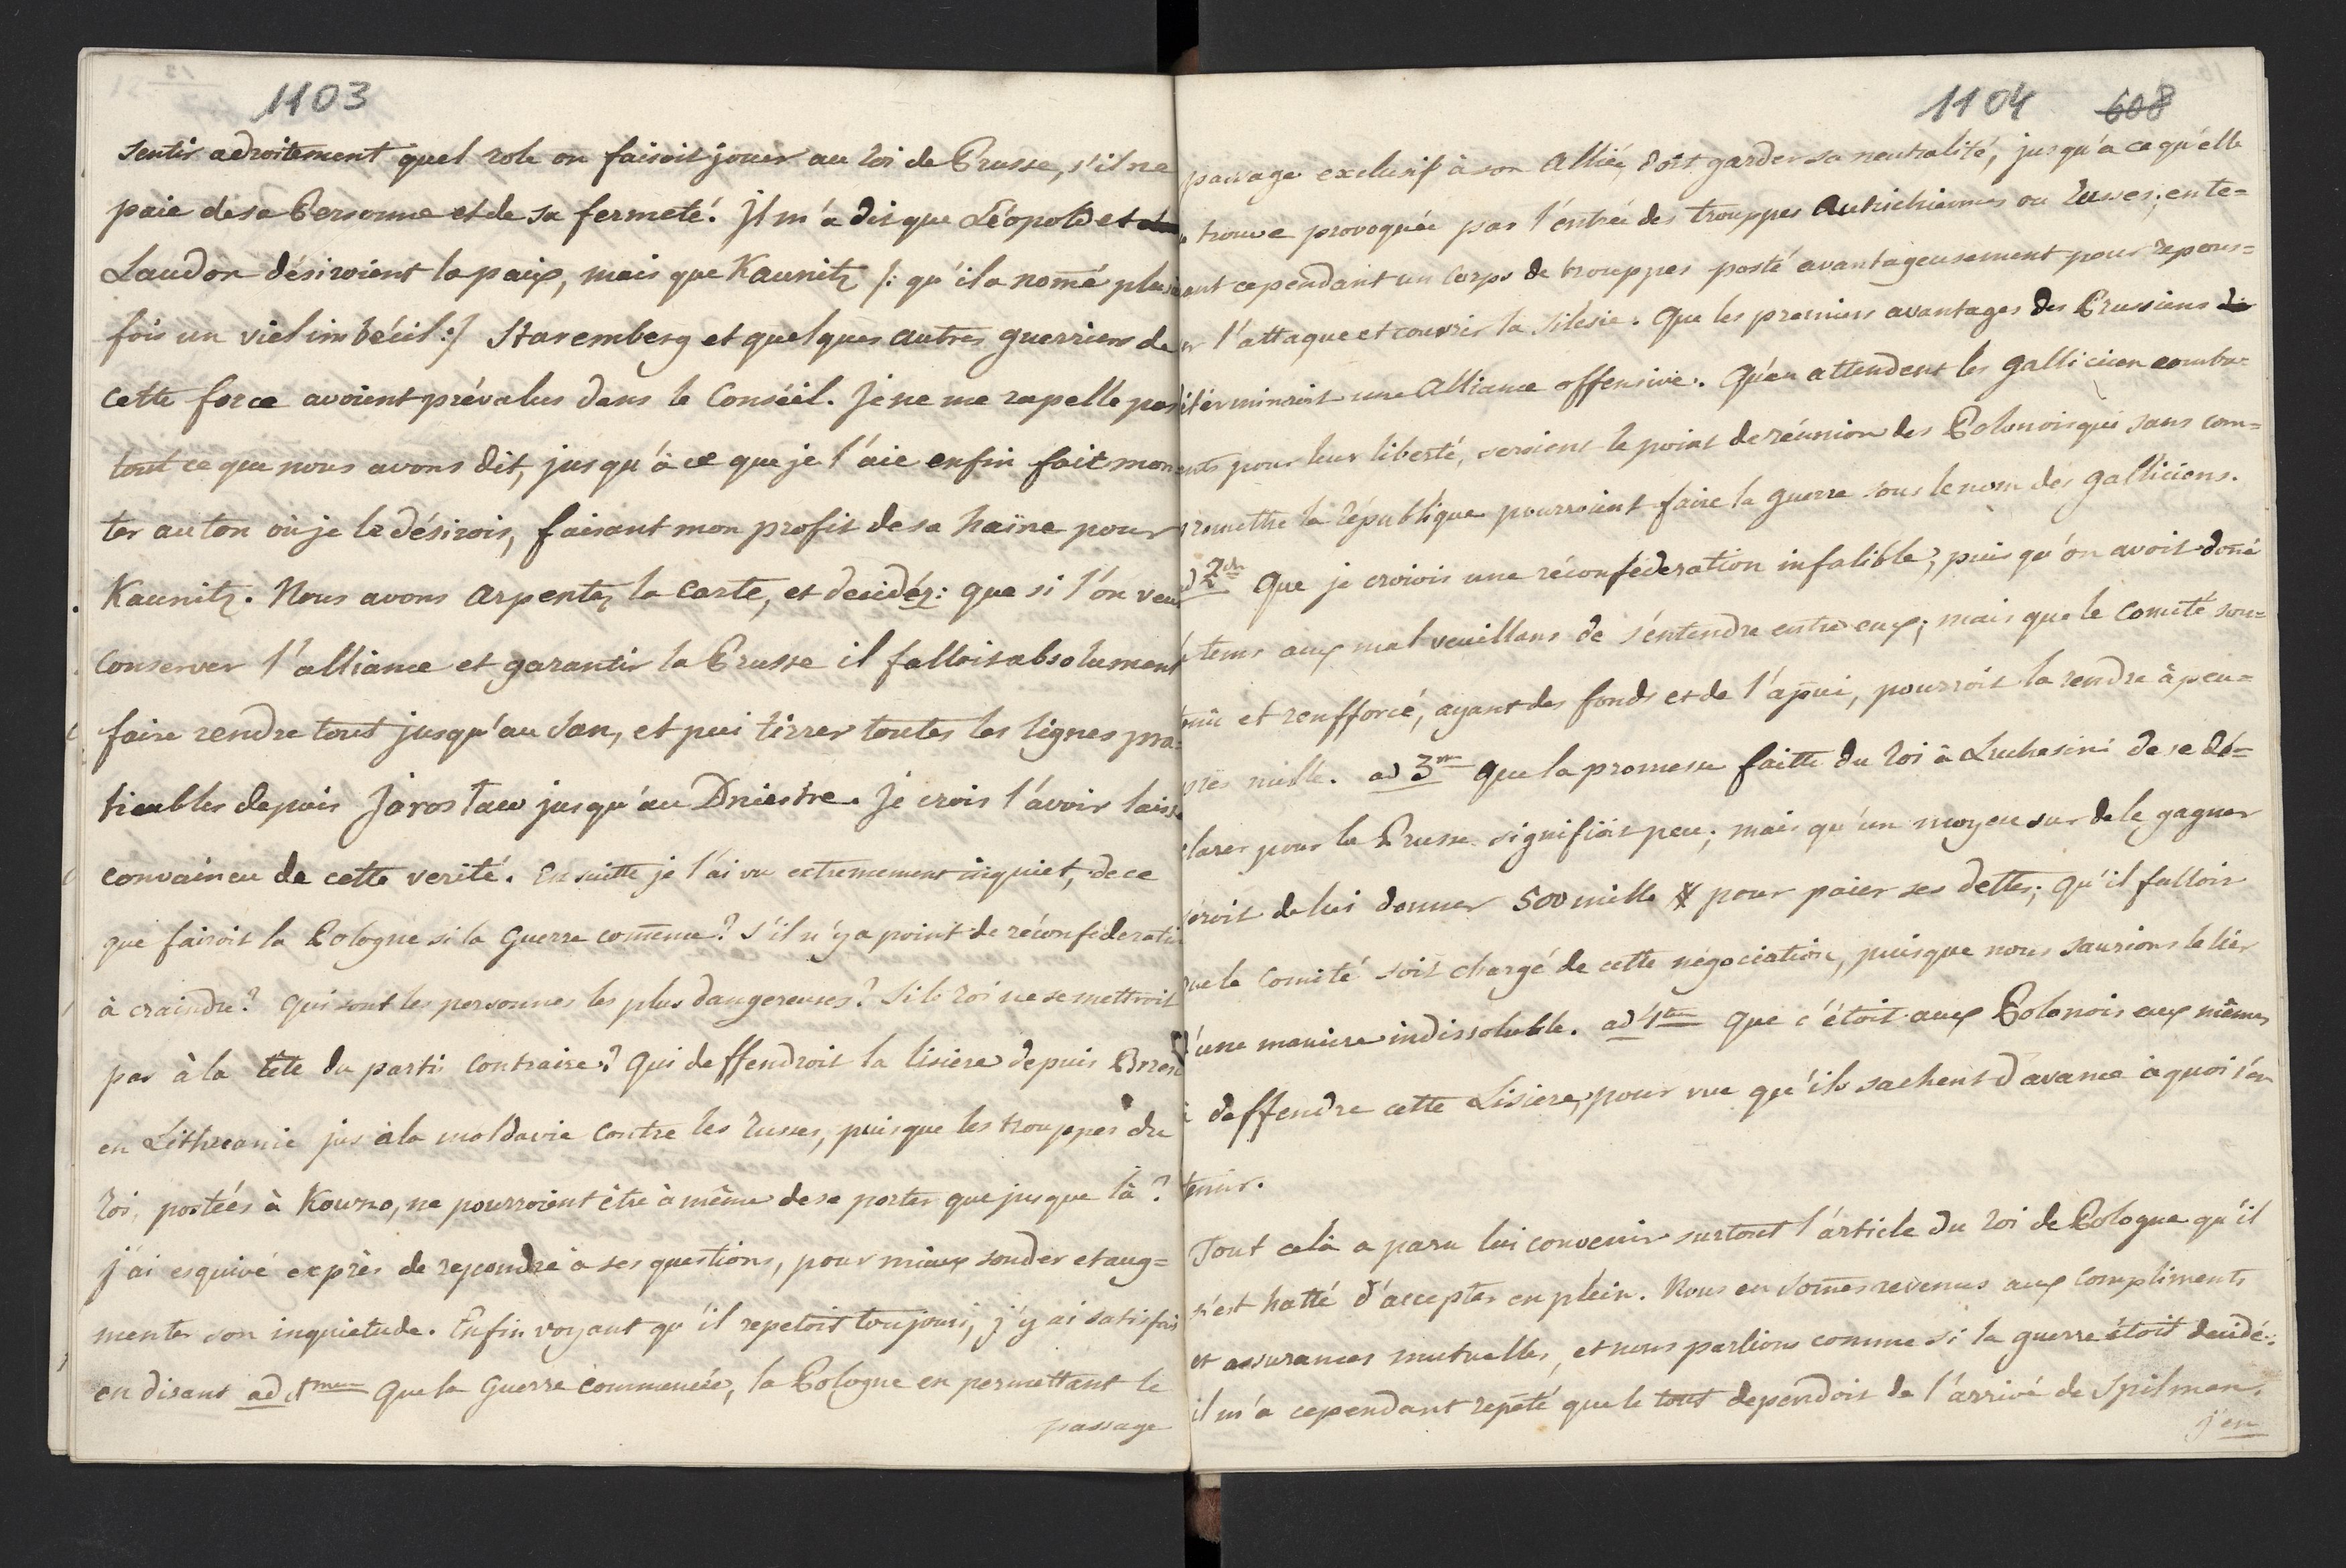 1103
sentir adroitement quel role on faisoit jouer au roi de Prusse, s'il ne
paie de sa Personne et de sa fermeté. Il m'a dit que Léopold et
Laudon désiroient la paix, mais que Kaunitz /: qu'il a nomé plusi
fois un viel imbécil :/ Staremberg et quelques autres guerriers de
cette force avoient prévalus dans le Conséil. Je ne me rapelle pas
tout ce que nous avons dit, jusqu'à ce que je l'aie enfin fait mon
ter au ton où je le désirois, faisant mon profit de sa haïne pour
Kaunitz. Nous avons arpentez la carte, et decidéz: que si l'ón veu
conserver l'alliance et garantir la Prusse il falloit absolument
faire rendre tout jusqu'au San, et pui tirrer toutes les lignes pra=
ticables depuis Jarosław jusqu'au Dniestre. Je crois l'avoir laiss
convaincu de cette verité. Ensuitte je l'ai vu extremement inquiet, de ce
que fairoit la Pologne si la Guerre comence? S'il n'y a point de réconfederatio
à craindre? Qui sont les personnes les plus dangereuses? Si le roi ne se mettroit
pas à la tête du parti contraire? Qui deffendroit la lisiere depuis Brzesc
en Lithuanie jus à la moldavie contre les Russes, puisque les trouppes du
Roi, postées à Kowno, ne pourroient être à même de se porter que jusque là?
j'ai esquivé exprès de repondre à ses questions, pour mieux sonder et aug=
menter son inquietude. Enfin voyant qu'il repetoit toujours, j'y ai satisfai
en disant ad 1mum Que la Guerre commencée, la Pologne en permettant le
passage
1104 608
passage exclusif à son Allié, doit garder sa neutralité, jusqu'à ce qu'elle
se trouve provoquée par l'entrée des trouppes Autrichiennes ou Russes; en te=
nant cependant un Corps de trouppes posté avantageusement pour repous=
ser l'attaque et couvrir la Silesie. Que les premiers avantages des Prussiens
détérmineroit une Alliance offensive. Qu'en attendent les Galliciien comba=
ents pour leur liberté, seroient le point de réunion des Polonois qui sans com=
promettre la république pourroient faire la guerre sous le nom des Galliciens.
ad 2dm Que je croiois une réconféderation infalible, puis qu'on avoit doné
le tems aux mal veuillans de s'entendre entre eux; mais que le Comité sou=
tenu et renfforcé, ayant des fonds et de l'apui, pourroit la rendre à peu=
près nulle. ad 3m Que la promesse faitte du roi à Luchesini de se dé=
clarer pour la Prusse signifioit peu; mais qu'un moyen sur de le gagner
séroit de lui donner 500 mille # pour paier ses dettes; qu'il falloit
que le Comité soit chargé de cette négociation, puisque nous saurions le lier
d'une maniere indissoluble. ad 4tum Que c'étoit aux Polonois eux mêmes
à deffendre cette Lisiere, pour vue qu'ils sachent d'avance à quoi s'en
tenir.
Tout celà a paru lui convenir surtout l'árticle du roi de Pologne qu'il
s'est hatté d'accepter en plein. Nous en somes revenus aux compliments
et assurances mutuelles, et nous parlions comme si la guerre étoit decidé:
il m'a cependant repeté que le tout dependoit de l'arrivé de Spilman.
j'en